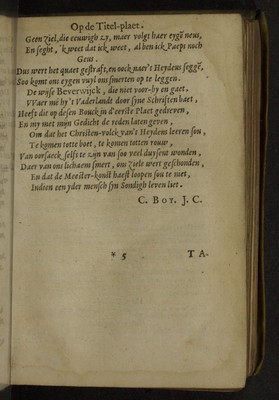 Op de Titel-plaet.
Geen Ziel, die eeuwigh zy, maer volgt haer eygē neus,
En seght, 'k weet dat ick weet, al ben ick Paeps noch
Geus.
Dus wert het quaet gestraft, en oock naer't Heydens seggē,
Soo komt ons eygen vuyl ons smerten op te leggen.
De wijse Beverwijck, die niet voor-by en gaet,
VVaer mē hy 't Vaderlandt door syne Schriften baet,
Heeft dit op desen Bouck in d'eerste Plaet gedreven,
En my met mijn Gedicht de reden laten geven,
Om dat het Christen-volck van't Heydens leeren sou,
Te komen totte boet, te komen totten rouw,
Van oorsaeck selfs te zijn van soo veel duysent wonden,
Daer van ons lichaem smert, ons Ziele wert geschonden,
En dat de Meester-konst haest loopen sou te niet,
Indien een yder mensch sijn Sondigh leven liet.
C. Boy. J. C.
* 5 TA.